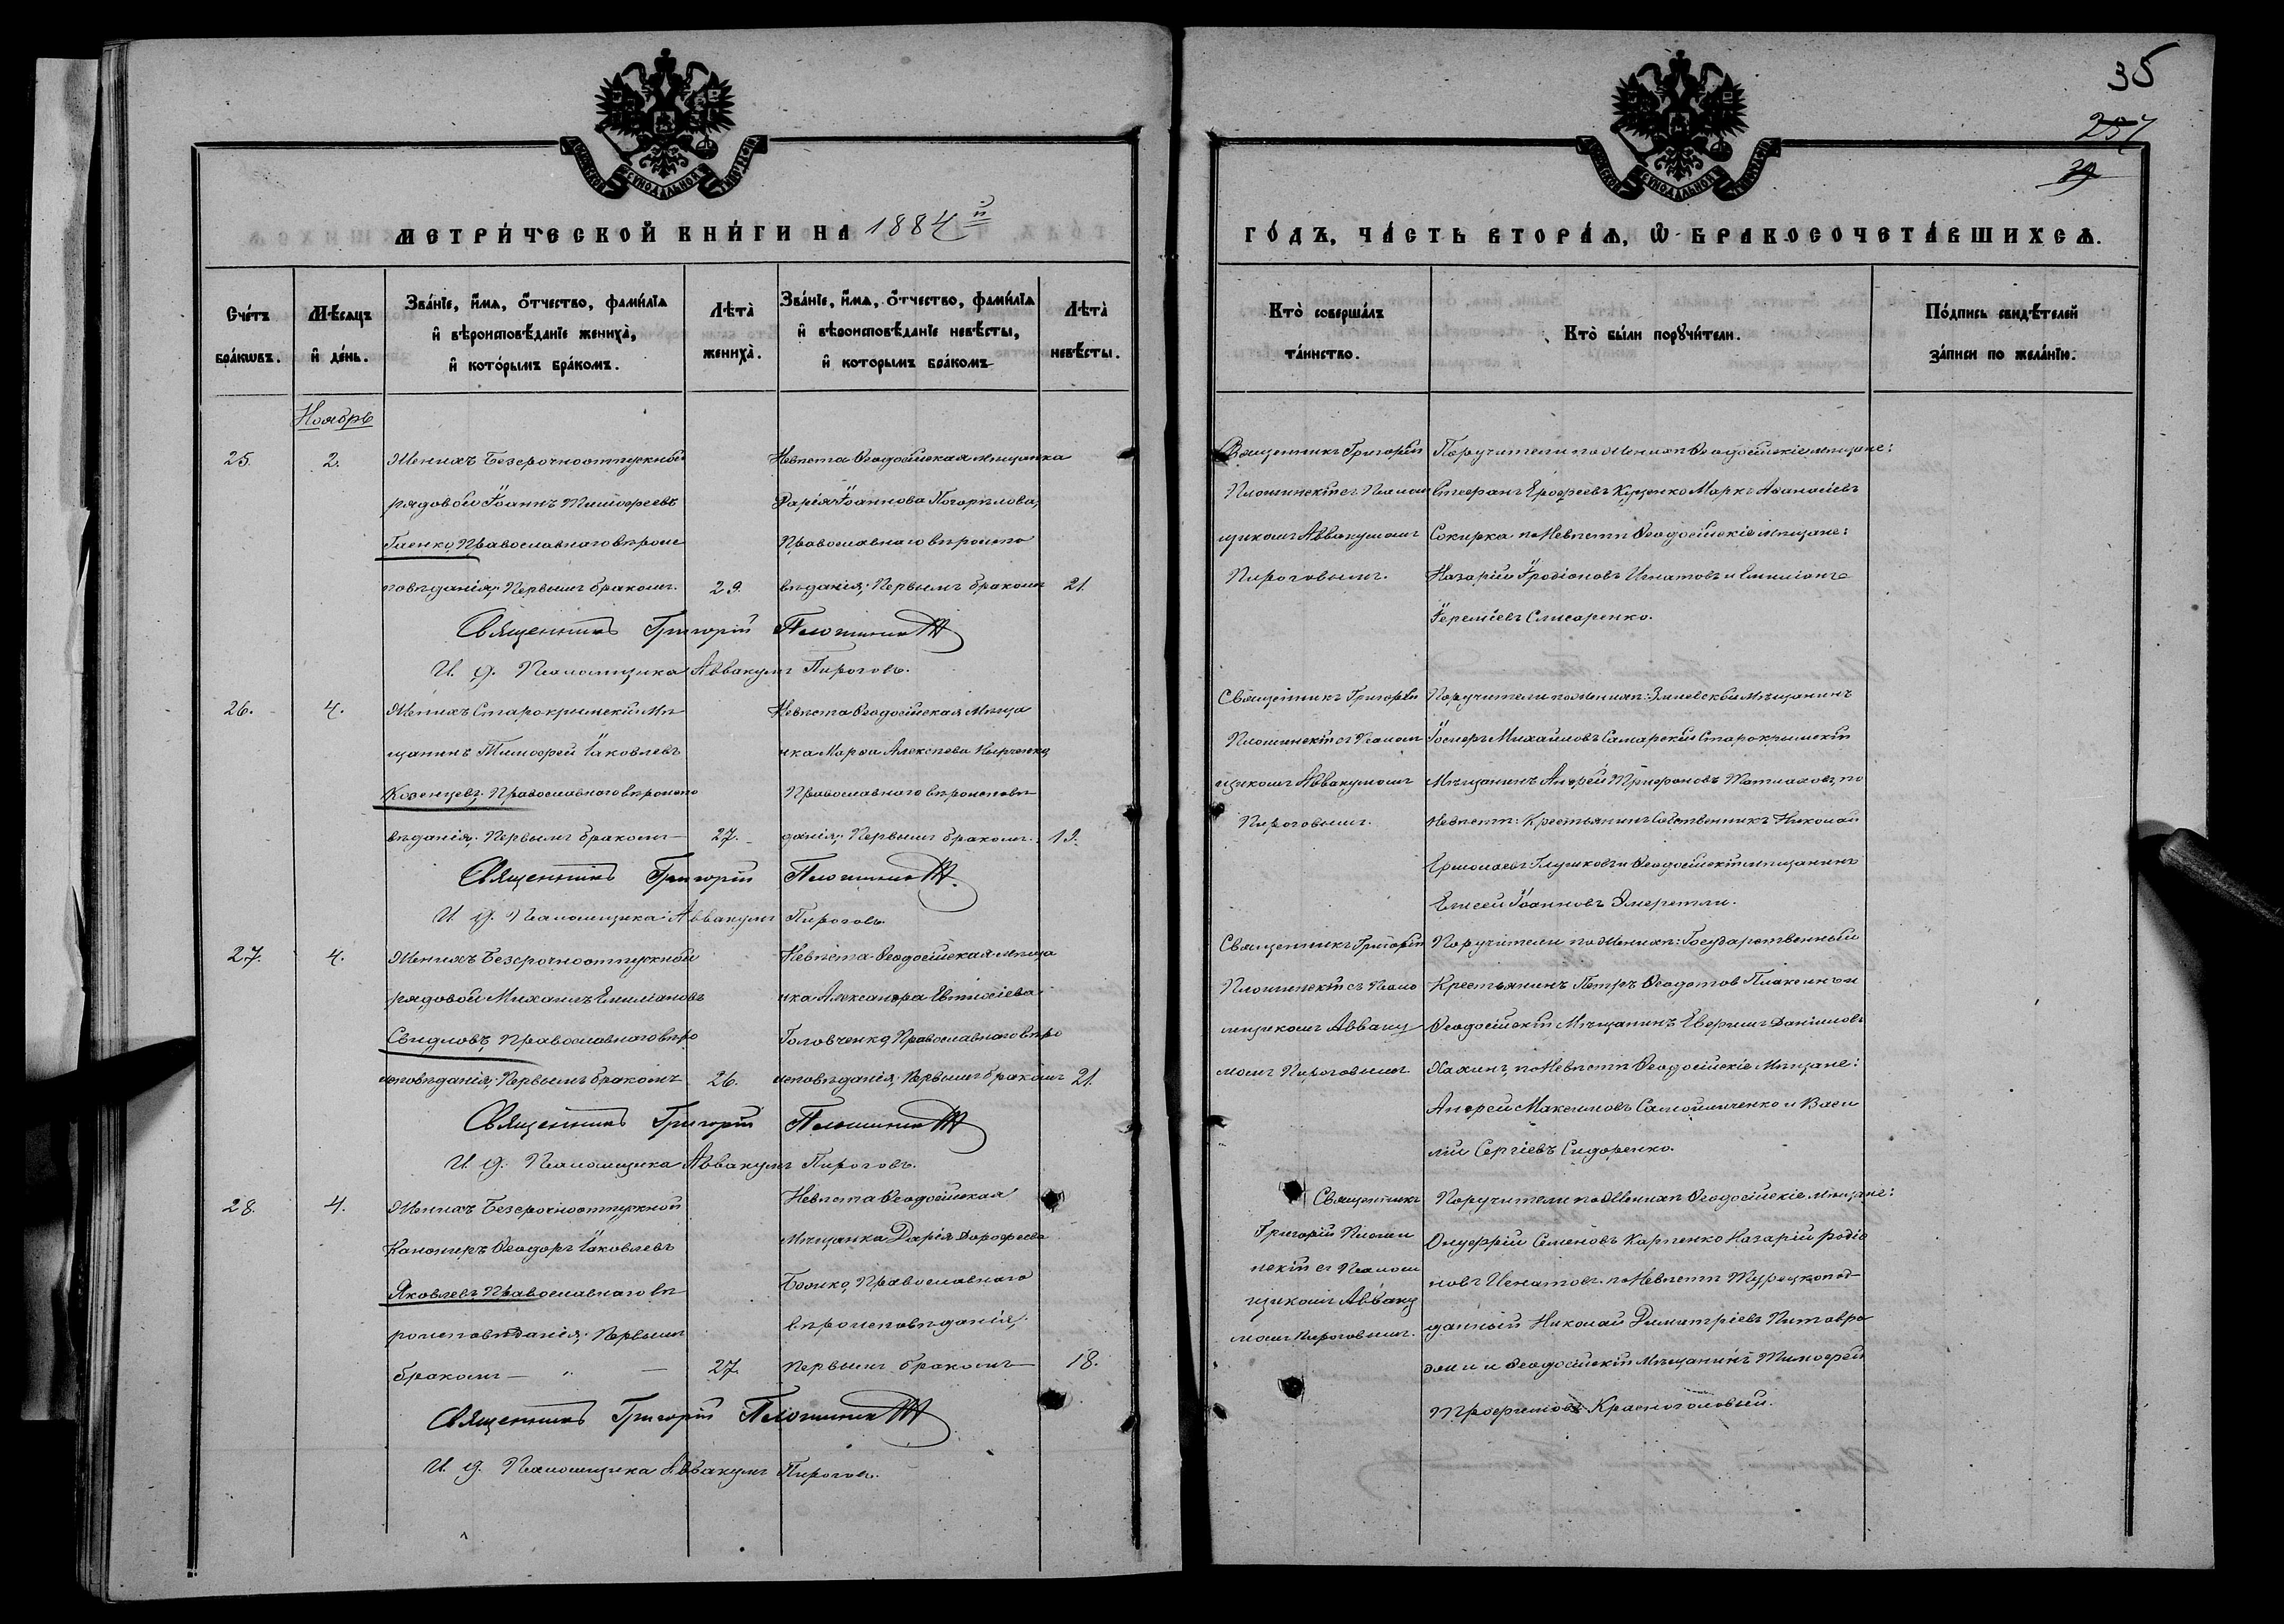 35
257
39
МЕТРИ́ЧЕСКОЙ КНИ́ГИ НА 1884й
ГО́ДЪ, ЧА́СТЬ ВТОРА́Ѧ, Ѽ БРАКОСОЧЕТА́ВШИХСѦ.
Сче́тъ бра́кѡвъ.
Мѣ́сяцъ и҆ де́нь.
Зва́нїе, и҆́мѧ, ѻ҆́тчество, фами́лїѧ
и҆ вѣроисповѣ́данїе жениха̀,
и҆ кото́рымъ бра́комъ.
Лѣта̀ жениха̀.
Зва́нїе, и҆́мѧ, ѻ҆́тчество, фами́лїѧ
и҆ вѣроисповѣ́данїе невѣ́сты,
и҆ кото́рымъ бра́комъ
Лѣта̀ невѣ́сты.
Кто̀ соверша́лъ та́инство.
Кто̀ бы́ли порꙋчи́тели.
По́дпись свидѣ́телей за́писи по жела́нїю.
Ноябрь
25.
2.
Женихъ Безсрочноотпускный
рядовой Іоаннъ Тимофеевъ
Гаенко, Православнаго вѣроис
повѣданія, Первымъ бракомъ.
29.
Невѣста Ѳеодосійская мѣщанка
Дарія Іоаннова Погорѣлова,
Православнаго вѣроиспо
вѣданія; Первымъ бракомъ
21.
Священникъ Григорій
съ Псалом
щикомъ Аввакумомъ
Пироговымъ.
Поручители по Женихѣ Ѳеодосійскіе мѣщане:
Стефанъ Ерофеевъ Куценко Маркъ Аѳанасіевъ
Сокирка по Невѣстѣ Ѳеодосійскіе мѣщане:
Назарій Іродіоновъ Игнатовъ и Емиліанъ
Іереміевъ Слисаренко.
Священникъ Григорій
И. д. Псаломщика Аввакумъ Пироговъ.
26.
4.
Женихъ Старокрымскій Мѣ
щанинъ Тимофей Іаковлевъ
Козенцевъ Православнаго вѣроиспо
вѣданія, Первымъ бракомъ
27.
Невѣста Ѳеодосійская Мѣща
нка Марѳа Алексѣева Кирченко,
Православнаго вѣроисповѣ
данія; Первымъ бракомъ.
19.
Священникъ Григорій
съ Псалом
щикомъ Аввакумомъ
Пироговымъ.
Поручители по Женихѣ: Змиевской Мѣщанинъ
Іосифъ Михайловъ Самарскій Старокрымскій
Мѣщанинъ Андрей Трифоновъ по
Невѣстѣ: Крестьянинъ Собственникъ Николай
Ермолаевъ Глушковъ и Ѳеодосійскій мѣщанинъ
Елисей Іоанновъ
Священникъ Григорій
И. д. Псаломщика Аввакумъ Пироговъ
27.
4.
Женихъ Безсрочноотпускной
рядовой Михаилъ Емиліановъ
Свидловъ, Православнаго вѣро
исповѣданія, Первымъ бракомъ
26.
Невѣста Ѳеодосійская мѣща
нка Александра Евтихіева
Головченко, Православнаго вѣро
исповѣданія, Первымъ бракомъ
21.
Священникъ Григорій
съ Псало
мщикомъ Авваку
момъ Пироговымъ
Поручители по Женихѣ: Государственный
Крестьянинъ Петръ Ѳеодотов Плаксинъ и
Ѳеодосійскій Мѣщанинъ Даніиловъ
по Невѣстѣ Ѳеодосійскіе Мѣщане:
Андрей Максимовъ Самойличенко и Васи
лій Сергіевъ Сидоренко.
Священникъ Григорій
И. д. Псаломщика Аввакумъ Пироговъ.
28.
4.
Женихъ Безсрочноотпускной
Канониръ Ѳеодоръ Іаковлевъ
Яковлевъ Православнаго вѣ
роисповѣданія, Первымъ
бракомъ
27.
Невѣста Ѳеодосійская
Мѣщанка Дарія Дорофеева
Бойко, Православнаго
вѣроисповѣданія,
первымъ бракомъ
18.
Священникъ
Григорій
съ Псалом
щикомъ Авваку
момъ Пироговымъ.
Поручители по Женихѣ Ѳеодосійскіе мѣщане:
Онуфрій Семеновъ Карпенко Назарій Родіо
новъ Игнатовъ по Невѣстѣ Турецкопод
данный Николай Димитріевъ
и Ѳеодосійскій Мѣщанинъ Тимофей
Трофимовъ Красноголовый.
Священникъ Григорій
И. д. Псаломщика Аввакумъ Пироговъ.